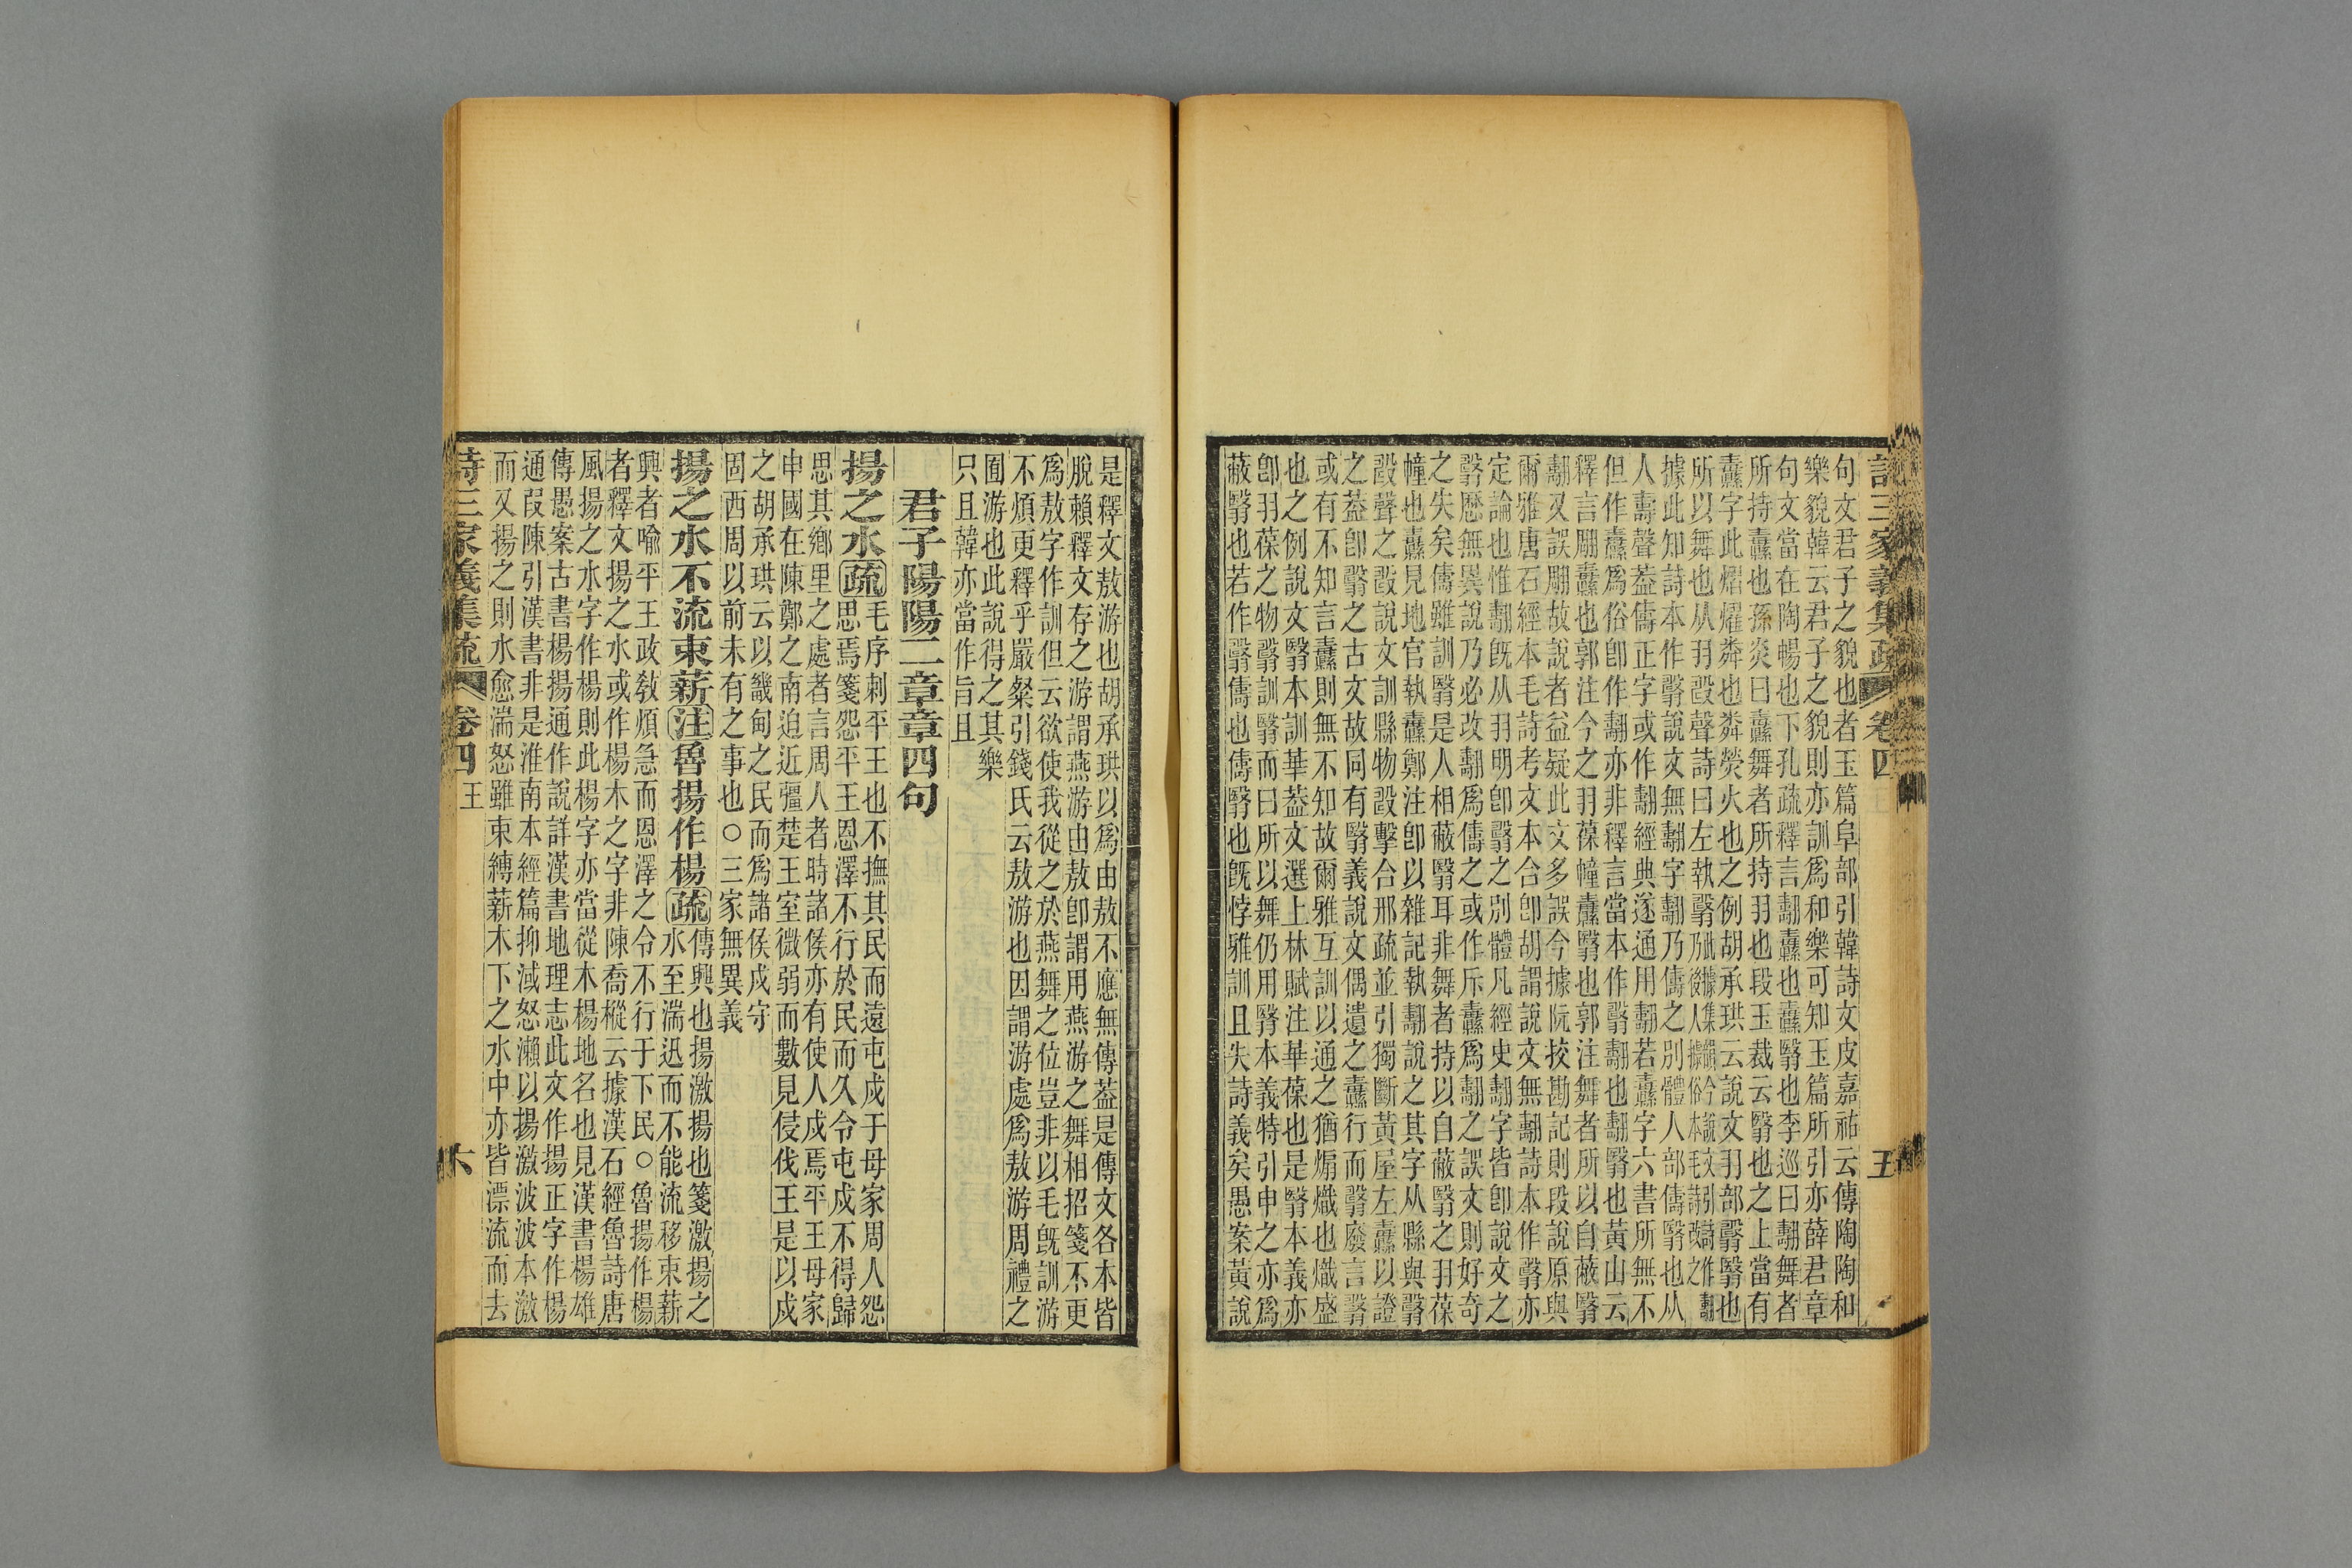 詩三家義集疏 卷四 五
句文君子之貌也者玉篇阜部引韓詩文皮嘉祐云傳陶陶和
樂貌韓云君子之貌則亦訓爲和樂可知玉篇所引亦薛君章
句文當在陶暢也下孔疏釋言翿纛也纛翳也李巡曰翿舞者
所持纛也孫炎曰纛舞者所持羽也段玉裁云翳也之上當有
纛字此熠燿粦也粦熒火也之例胡承珙云說文羽部翳也
所以舞也从羽殹聲詩曰左執翳
據此知詩本作翳說文無翿字翿乃儔之別體人部儔翳也从
人壽聲葢儔正字或作翿經典遂通用翿若纛字六書所無不
但作纛爲俗卽作翿亦非釋言當本作翳翿也翿翳也黃山云
釋言翢纛也郭注今之羽葆幢纛翳也郭注舞者所以自蔽翳
翿又誤翢故說者益疑此文多誤今據阮挍勘記則段說原與
爾雅唐石經本毛詩考文本合卽胡謂說文無翿詩本作翳亦
定論也惟翿旣从羽明卽翳之別體凡經史翿字皆卽說文之
翳歷無異說乃必改翿爲儔之或作斥纛爲翿之誤文則好奇
之失矣儔雖訓翳是人相蔽翳耳非舞者持以自蔽翳之羽葆
幢也纛見地官執纛鄭注卽以雜記執翿說之其字从縣與翳
殹聲之殹說文訓縣物殹擊合邢疏並引獨斷黃屋左纛以證
之葢卽翳之古文故同有翳義說文偶遺之纛行而翳廢言翳
或有不知言纛則無不知故爾雅互訓以通之猶煽熾也熾盛
也之例說文翳本訓華葢文選上林賦注華葆也是翳本義亦
卽羽葆之物翳訓翳而曰所以舞仍用翳本義特引申之亦爲
蔽翳也若作翳儔也儔翳也旣悖雅訓且失詩義矣愚案黃說
是釋文敖游也胡承珙以爲由敖不應無傳葢是傳文各本皆
脫賴釋文存之游謂燕游由敖卽謂用燕游之舞相招箋不更
爲敖字作訓但云欲使我從之於燕舞之位豈非以毛旣訓游
不煩更釋乎嚴粲引錢氏云敖游也因謂游處爲敖游周禮之
囿游也此說得之其樂
只且韓亦當作旨且
君子陽陽二章章四句
揚之水疏毛序刺平王也不撫其民而遠屯戍于母家周人怨
思焉箋怨平王恩澤不行於民而久令屯戍不得歸
思其鄉里之處者言周人者時諸侯亦有使人戍焉平王母家
申國在陳鄭之南迫近彊楚王室微弱而數見侵伐王是以戍
之胡承珙云以畿甸之民而爲諸侯戍守
固西周以前未有之事也○三家無異義
揚之水不流束薪注魯揚作楊疏傳興也揚激揚也箋激揚之
水至湍迅而不能流移束薪
興者喻平王政敎煩急而恩澤之令不行于下民○魯揚作楊
者釋文揚之水或作楊木之字非陳喬樅云據漢石經魯詩唐
風揚之水字作楊則此楊字亦當從木楊地名也見漢書楊雄
傳愚案古書楊揚通作說詳漢書地理志此文作揚正字作楊
通叚陳引漢書非是淮南本經篇抑淢怒瀨以揚激波波本激
而又揚之則水愈湍怒雖束縛薪木下之水中亦皆漂流而去
詩三家義集疏 卷四 王 六